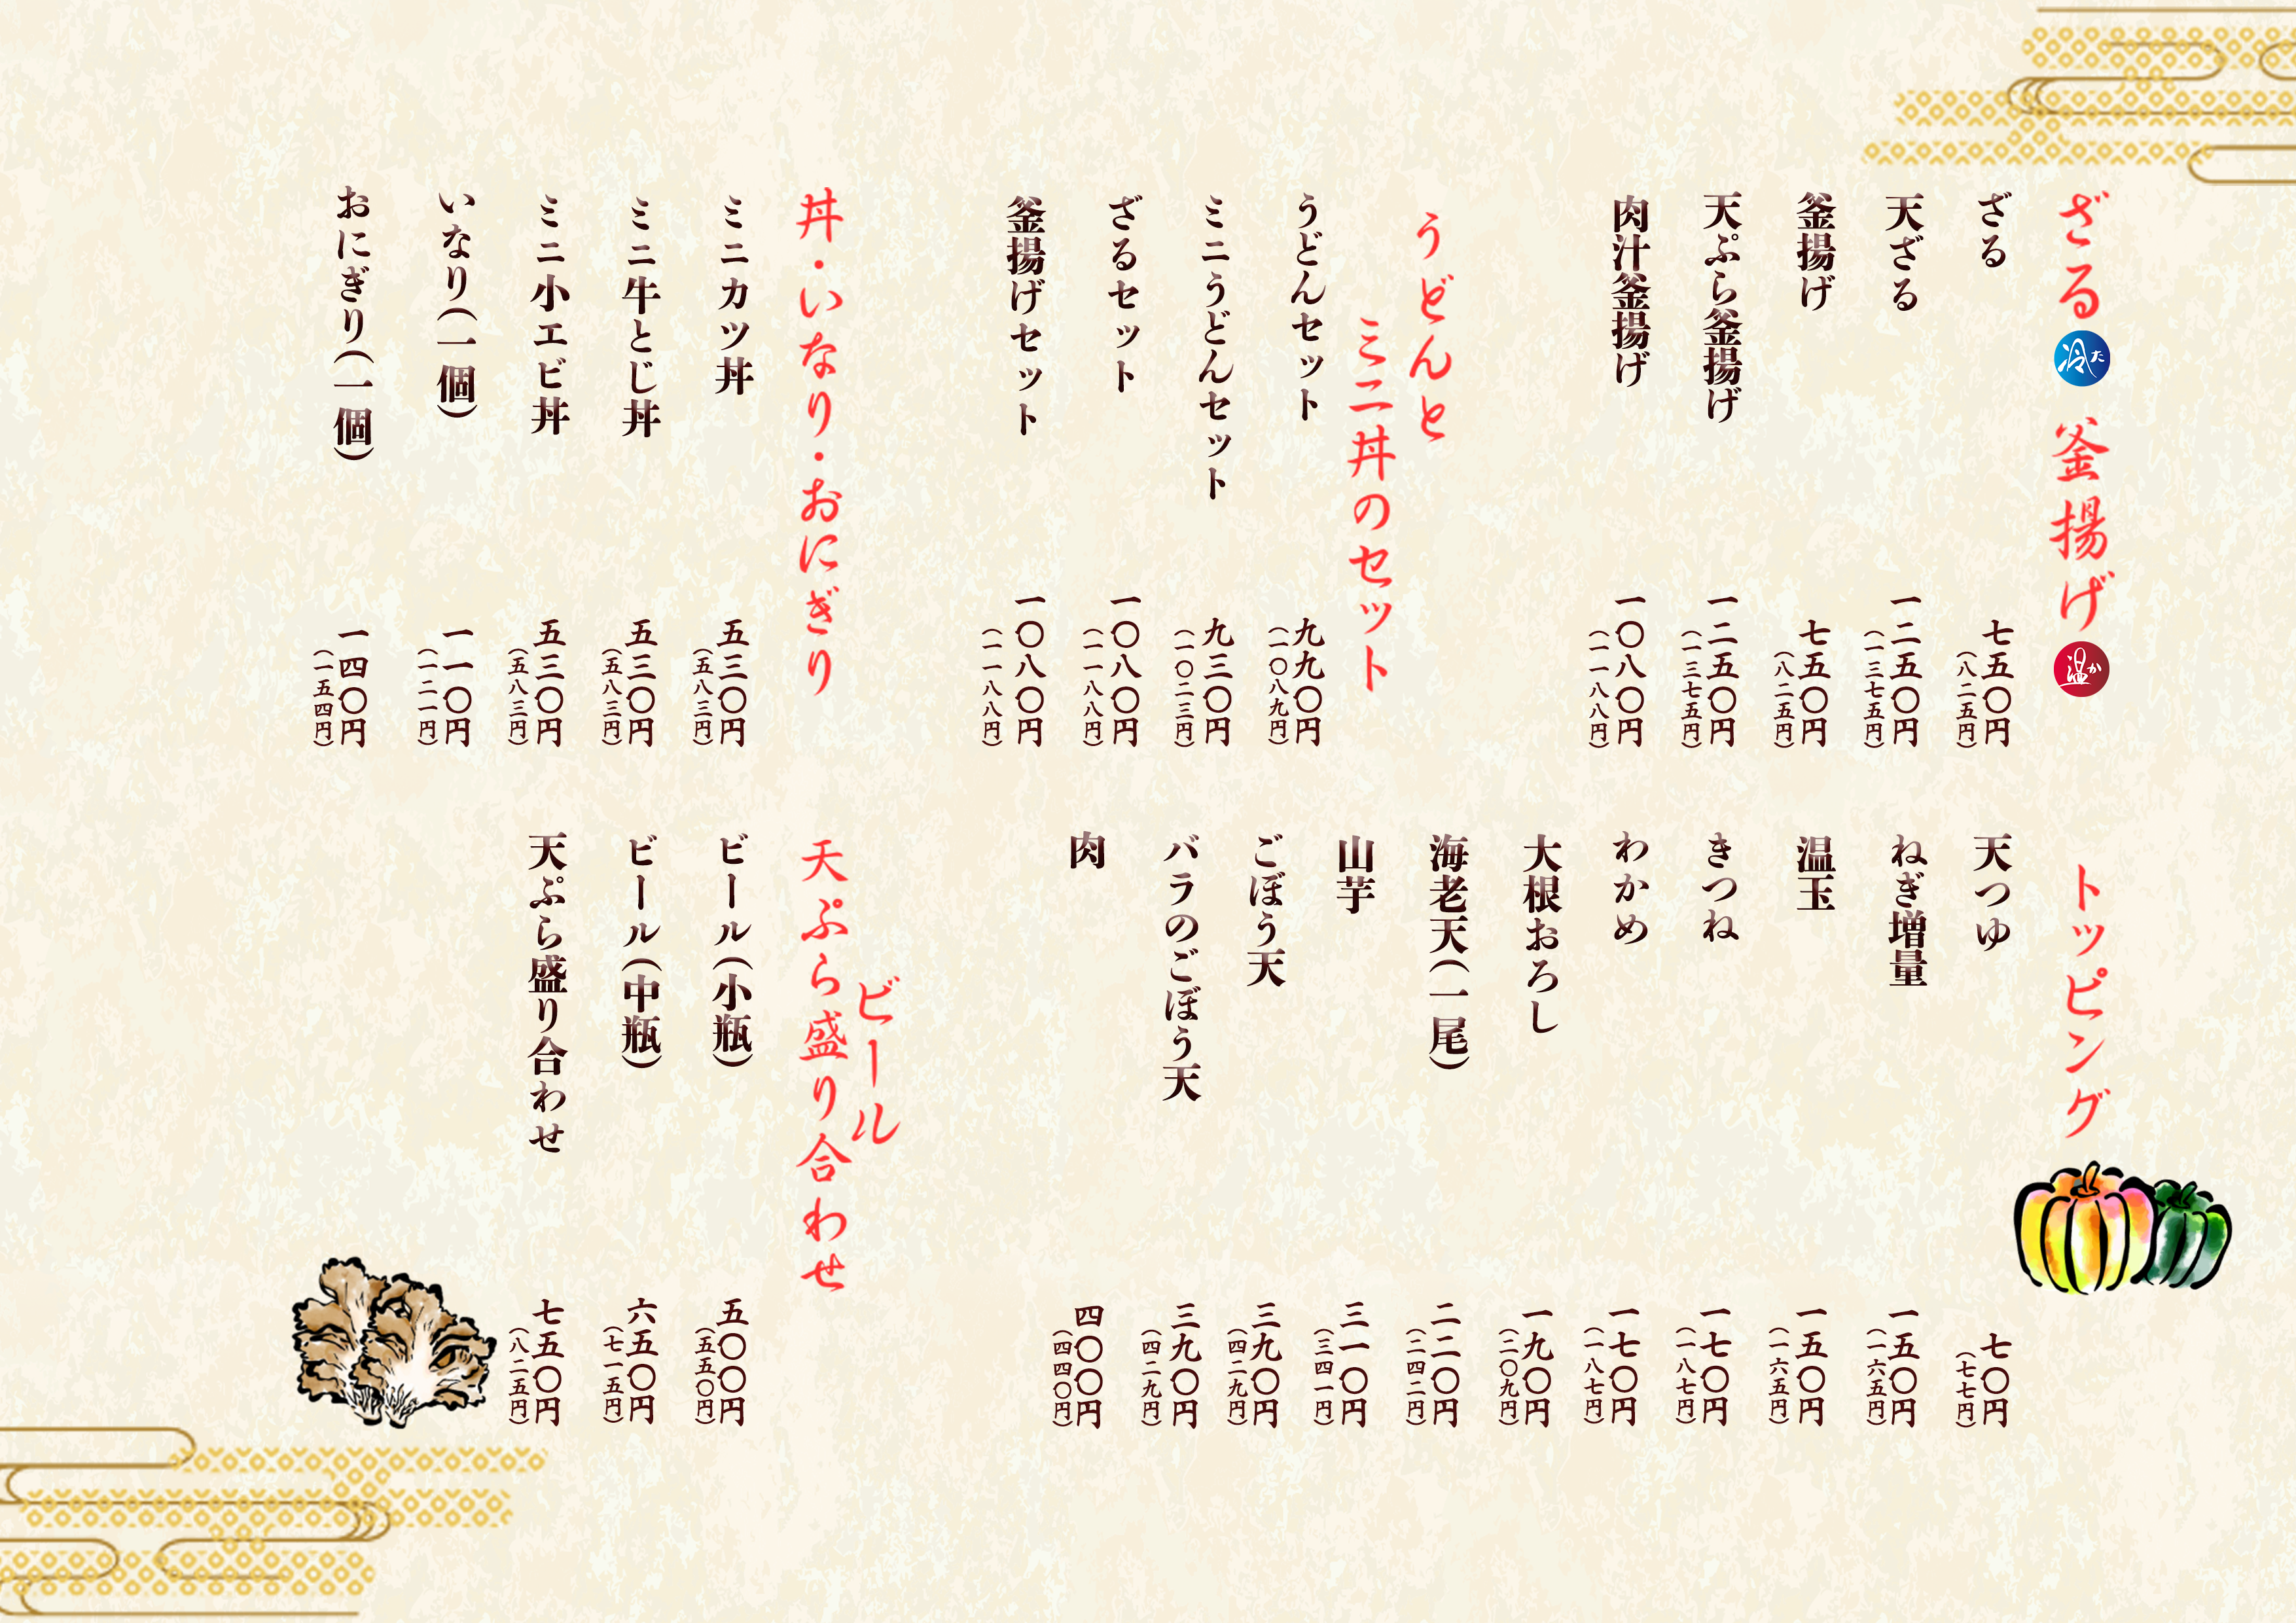 ざる 冷た 釜揚げ 温か
ざる 七五〇円
(八二五円)
天ざる 一二五〇円
(一三七五円)
釜揚げ 七五〇円
(八二五円)
天ぷら釜揚げ 一二五〇円
(一三七五円)
肉汁釜揚げ 一〇八〇円
(一一八八円)
うどんと
ミニ丼のセット
うどんセット 九九〇円
(一〇八九円)
ミニうどんセット 九三〇円
(一〇二三円)
ざるセット 一〇八〇円
(一一八八円)
釜揚げセット 一〇八〇円
(一一八八円)
丼・いなり・おにぎり
ミニカツ丼 五三〇円
(五八三円)
ミニ牛とじ丼 五三〇円
(五八三円)
ミニ小エビ丼 五三〇円
(五八三円)
いなり(一個) 一一〇円
(一二一円)
おにぎり(一個) 一四〇円
(一五四円)
トッピング
天つゆ 七〇円
(七七円)
ねぎ増量 一五〇円
(一六五円)
温玉 一五〇円
(一六五円)
きつね 一七〇円
(一八七円)
わかめ 一七〇円
(一八七円)
大根おろし 一九〇円
(二〇九円)
海老天(一尾) 二二〇円
(二四二円)
山芋 三一〇円
(三四一円)
ごぼう天 三九〇円
(四二九円)
バラのごぼう天 三九〇円
(四二九円)
肉 四〇〇円
(四四〇円)
ビール
天ぷら盛り合わせ
ビール(小瓶) 五〇〇円
(五五〇円)
ビール(中瓶) 六五〇円
(七一五円)
天ぷら盛り合わせ 七五〇円
(八二五円)